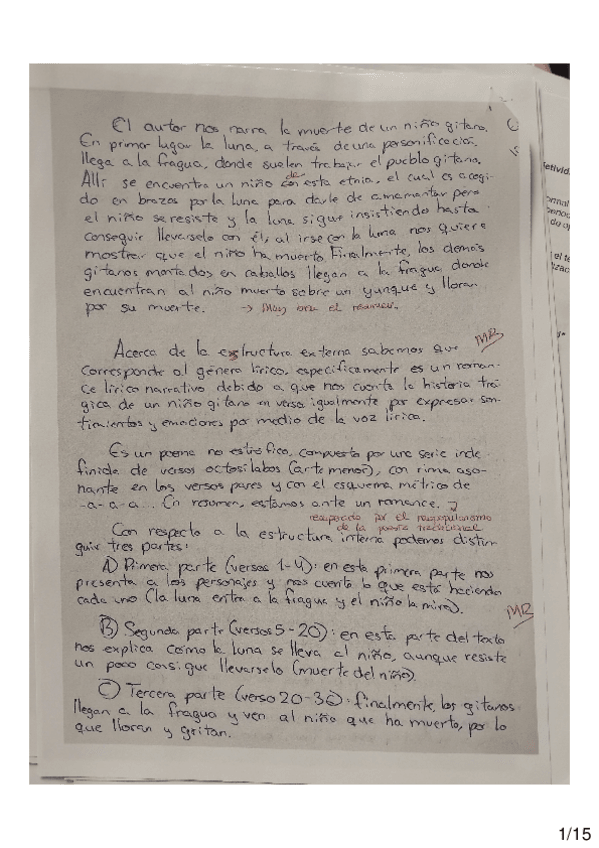 El autor nos narra la muerte de un niño gitano.
En primer lugar la luna, a través de una personificación,
llega a la fragua, donde suelen trabajar el pueblo gitano.
Allí se encuentra un niño de esta etnia, el cual es acogi-
do en brazos por la luna para darle de amamantar pero
el niño se resiste y la luna sigue insistiendo hasta
conseguir llevarselo con él, al irse con la luna nos quiere
mostrar que el niño ha muerto. Finalmente, los demás
gitanos montados en caballos llegan a la fragua donde
encuentran al niño muerto sobre un yunque y lloran
por su muerte. → Muy bien el resumen.
MB
Acerca de la estructura externa sabemos que
corresponde al género lírico, especificamente es un roman-
ce lírico narrativo debido a que nos cuenta la historia trá-
gica de un niño gitano en verso igualmente por expresar sen-
timientos y emociones por medio de la voz lírica.
Es un poema no estrófico, compuesto por una serie inde
finida de versos octosílabos (arte menor), con rima aso-
nante en los versos pares y con el esquema métrico de
-a-a-a... En resumen, estamos ante un romance.
por el neopopularismo
de la poesía tradicional
Con respecto a la estructura interna podemos distin
guir tres partes:
A) Primera parte (versos 1-4): en esta primera parte nos
presenta a los personajes y nos cuenta lo que está haciendo
cada uno (la luna entra a la fragua y el niño la mira).
MB
B) Segunda parte (versos 5-20): en esta parte del texto
nos explica como la luna se lleva al niño, aunque resiste
un poco consigue llevarselo (muerte del niño).
C) Tercera parte (verso 20-36): finalmente, los gitanos
llegan a la fragua y ven al niño que ha muerto, por lo
que lloran y gritan.
1/15